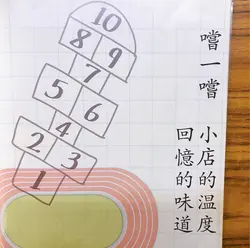 嚐一嚐
小店的溫度
回憶的味道
10
8 9
7
5 6
4
2 3
1